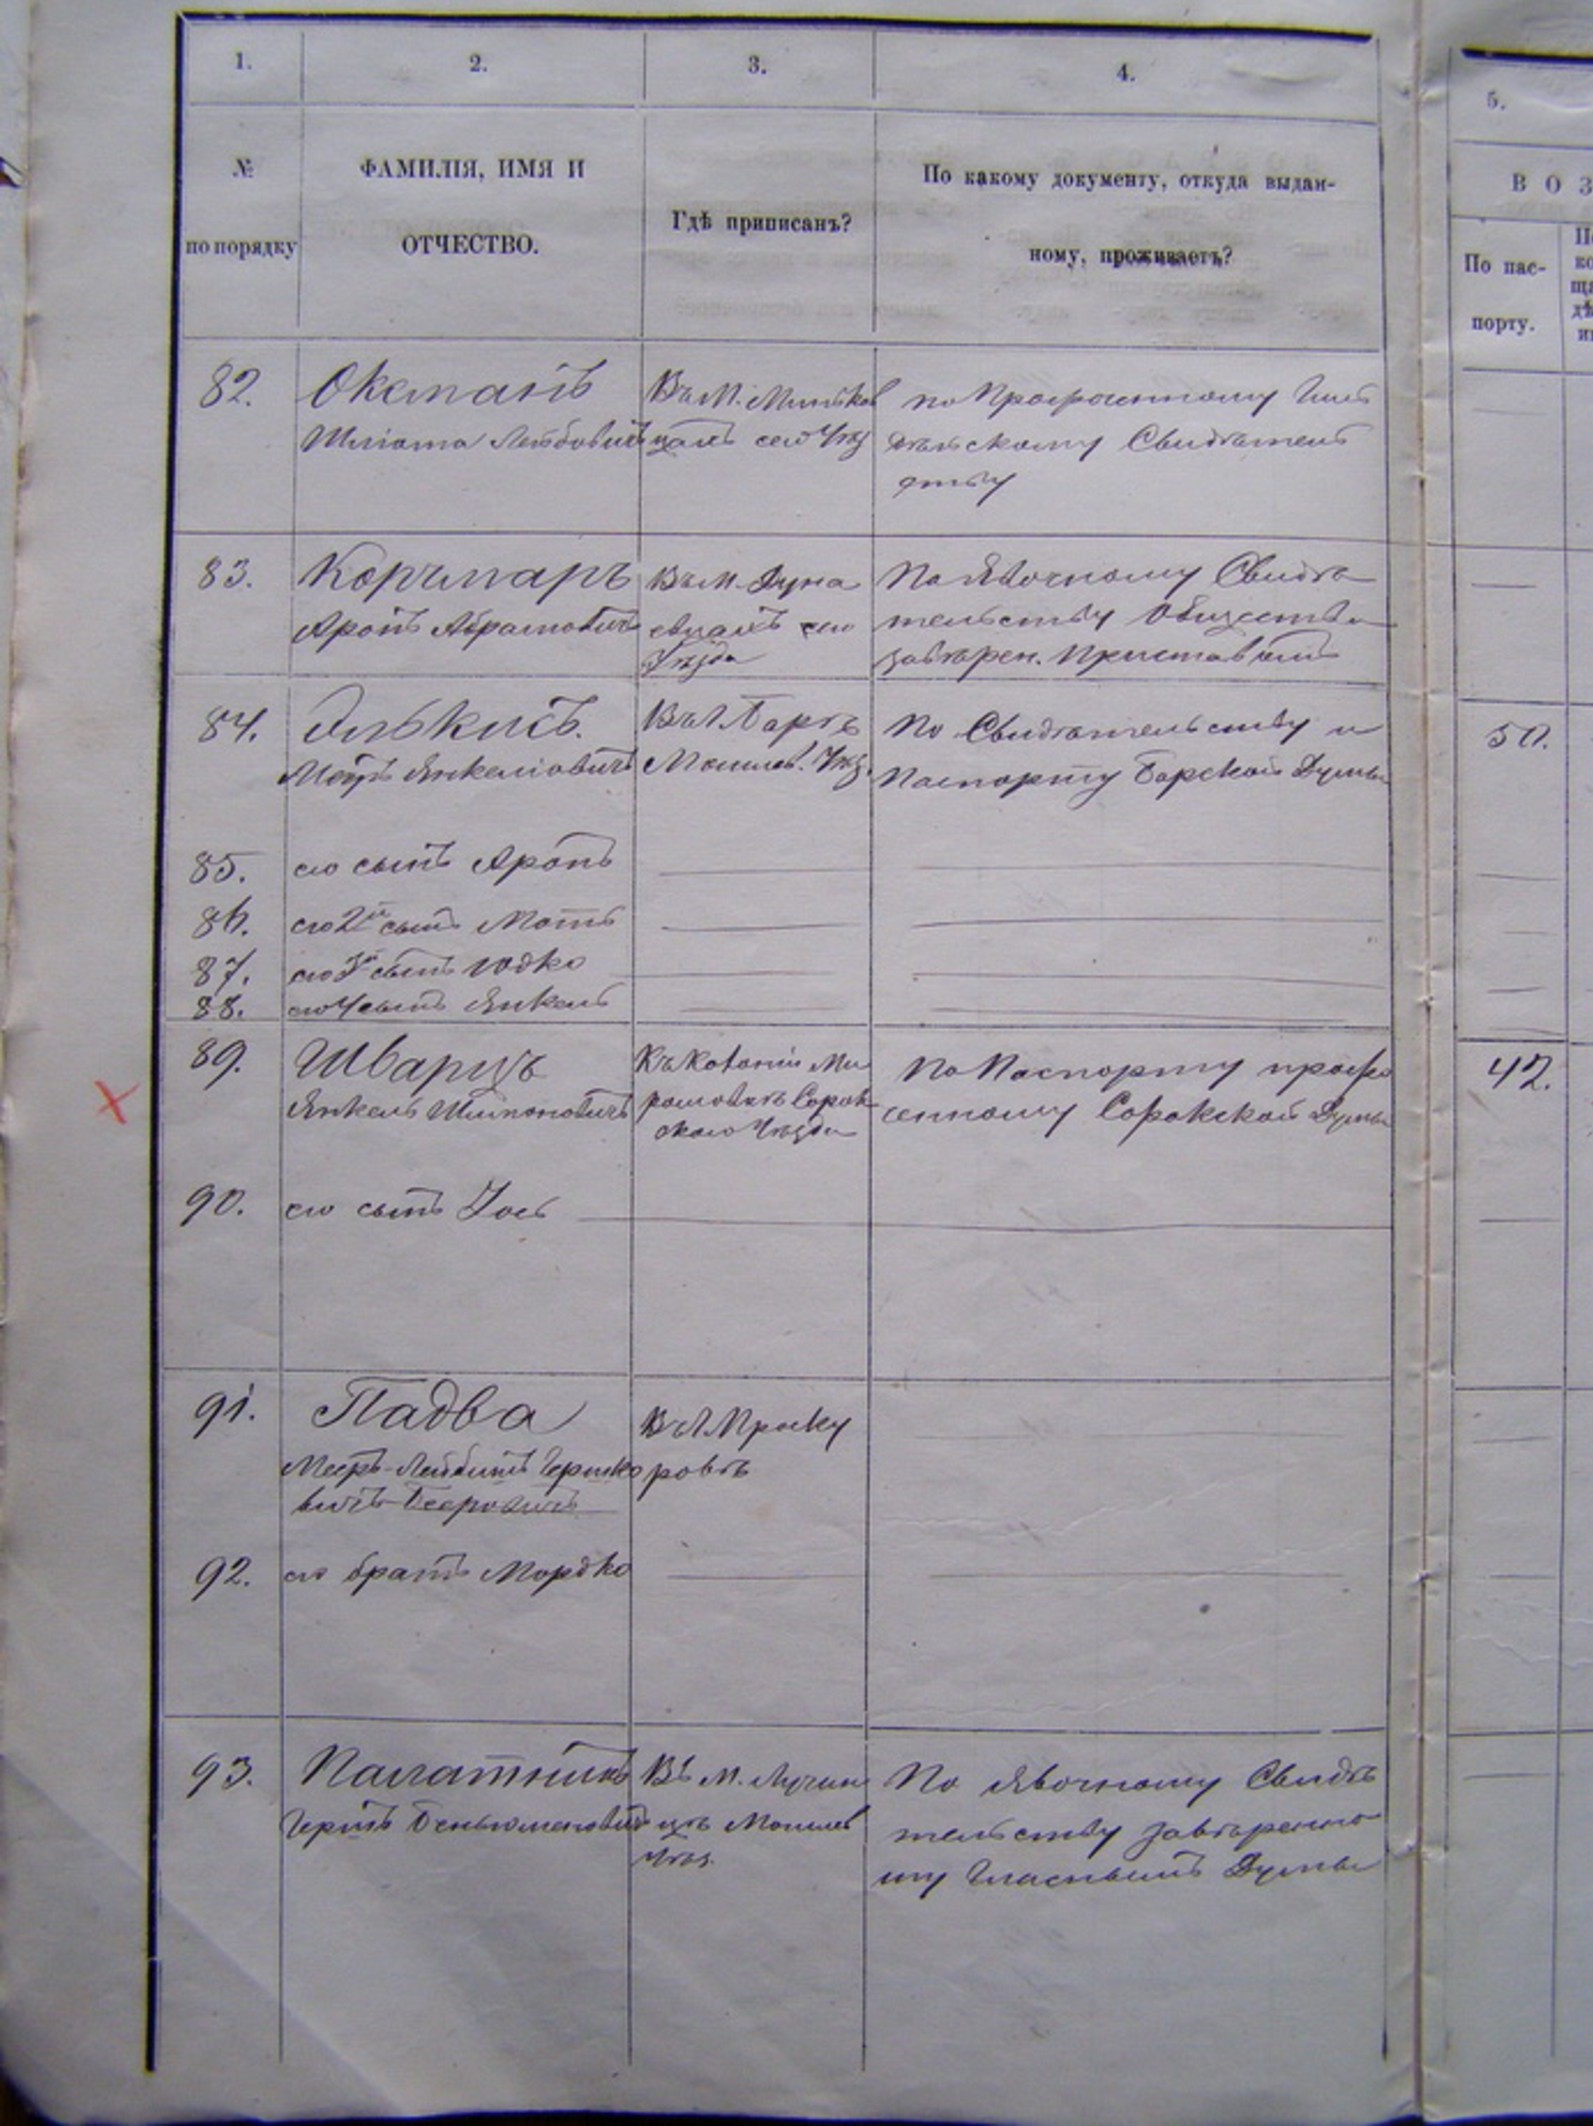 1.
2.
3.
4.
5.
№
по порядку
ФАМИЛІЯ, ИМЯ И
ОТЧЕСТВО.
Гдѣ приписанъ?
По какому документу, откуда выдан-
ному, проживаетъ?
ВОЗ
По пас-
порту.
82.
Оксманъ
Шліома Лейбовичъ
Въ М. Миньков
цахъ сего Уѣз
по Просроченному
Свидѣтель
ству
83.
Корчмаръ
Аронъ Абрамовичъ
Въ М. Дуна
евцахъ сего
Уѣзда
По Явочному Свидѣ
тельству Общества
завѣрен. Приставомъ
84.
Элькисъ.
Мееръ Янкеліовичъ
Въ Г. Барѣ
Могилев. Уѣз.
По Свидѣтельству и
Паспорту Барской Думы
50.
85.
его сынъ Аронъ
86.
его 2й сынъ Мотъ
87.
его 3й сынъ Юдко
88.
его 4 сынъ Янкель
89.
Шварцъ
Янкель Шимоновичъ
Къ Колоніи Ма
рамовкѣ Сорок
скаго Уѣзда
По Паспорту просро
ченному Сорокской Думы
42.
90.
его сынъ Іось
91.
Падва
Мееръ-Лейбишъ Гершко
вичъ Бееровичъ
Въ Г. Проску
ровѣ
92.
его братъ Мордко
93.
Палатникъ
Гершъ Беньюменовичъ
Въ М. Лучин
цѣ Могилев
Уѣз.
По Явочному Свидѣ
тельству завѣренно
му Гласнымъ Думы